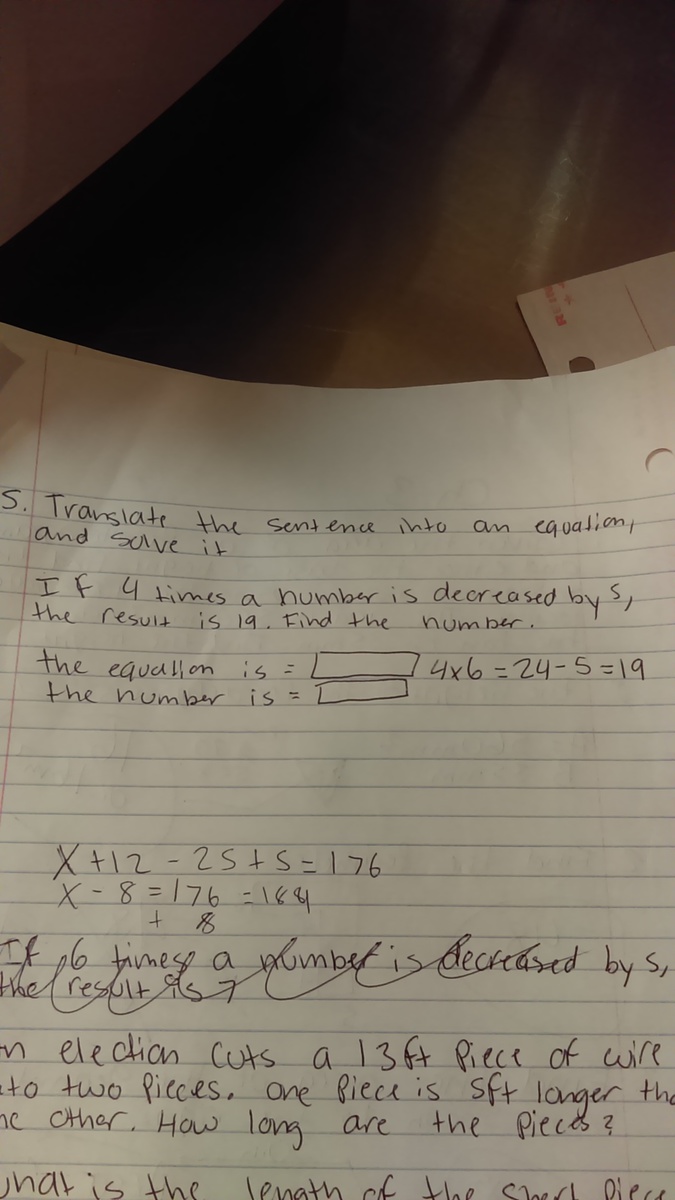 5. Translate the sentence into an equation,
and solve it
If 4 times a number is decreased by 5,
the result is 19. Find the number.
the equation is = 4x6 = 24-5 = 19
the number is =
X +12 - 25 + 5 = 176
X - 8 = 176 = 184
+ 8
If 6 times a number is decreased by 5,
the result is 7
n election cuts a 13ft piece of wire
to two pieces. One piece is 5ft longer tha
other. How long are the pieces?
what is the length of the short piece